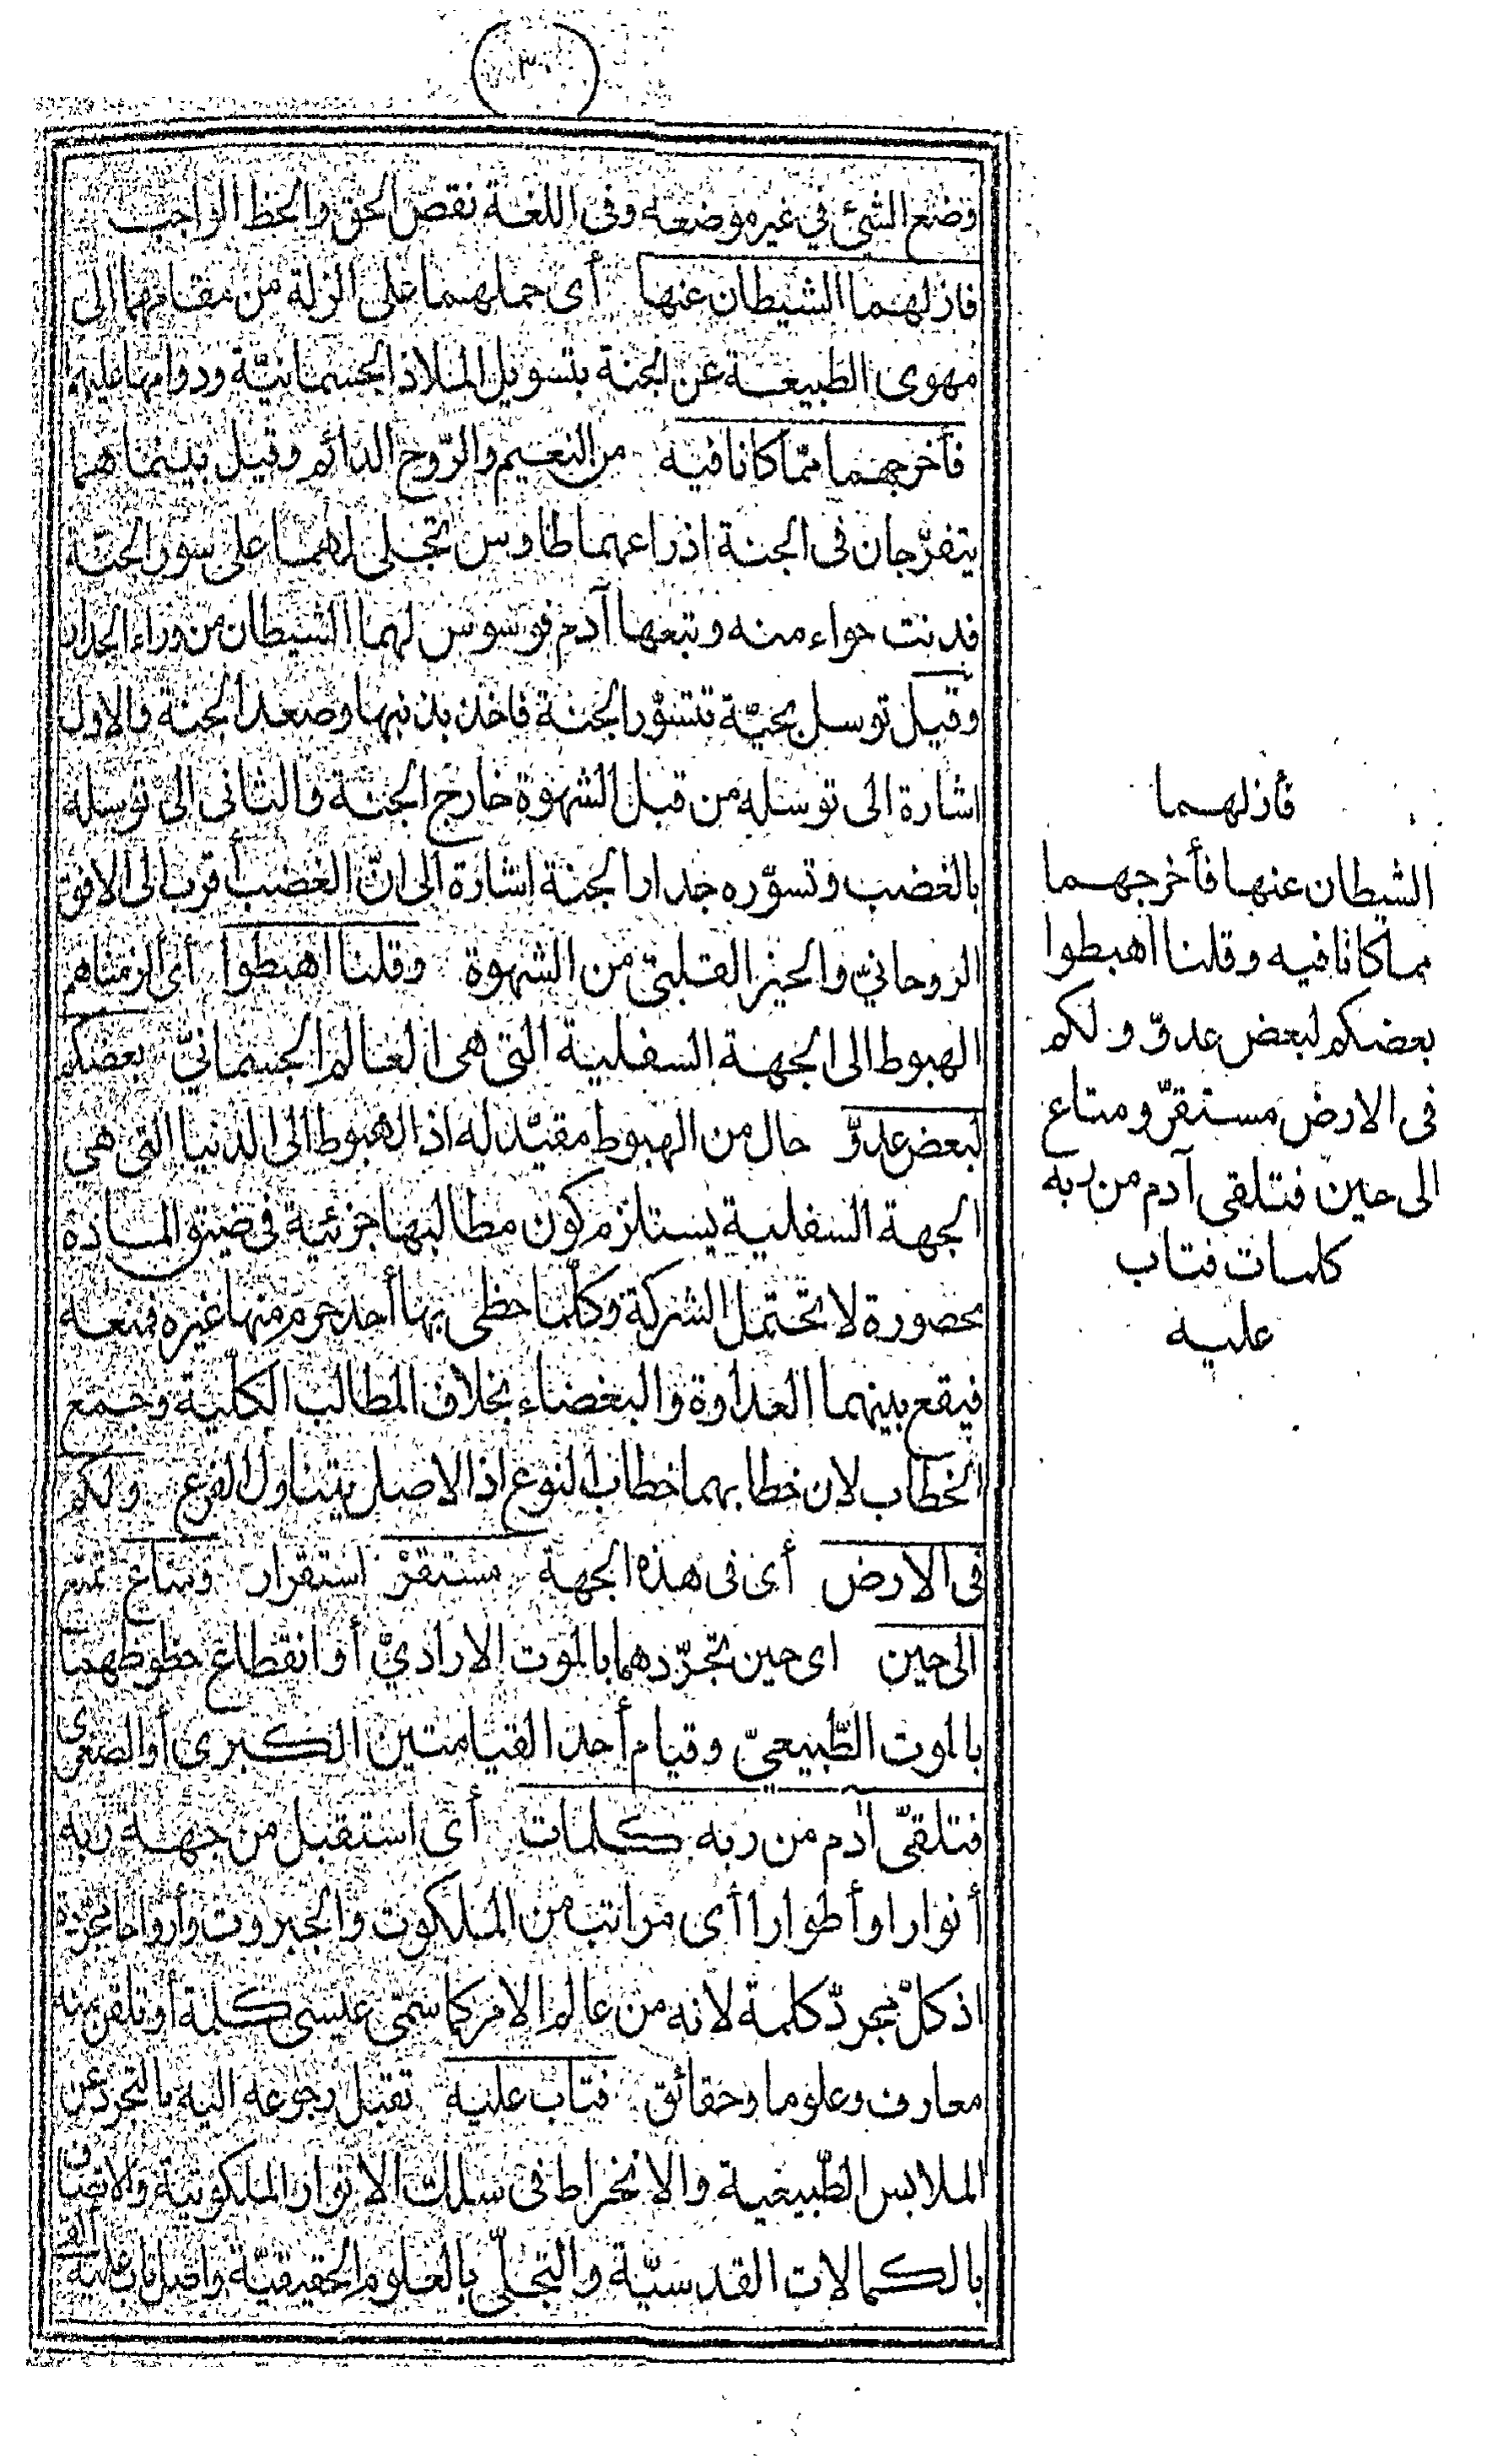 ٣٠
وضع الشئ في غير موضعه وفى اللغة نقص الحق والحظ الواجب
فازلهما الشيطان عنها أى حملهما على الزلة من مقامهما الى
مهوى الطبيعة عن الجنة بتسويل الملاذ الجسمانيّة ودوامها عليهما
فأخرجهما ممّا كانا فيه من النعيم والرّوح الدائم وقيل بينما هما
يتفرّجان فى الجنة اذ راعهما طاوس تجلى لهما على سور الجنّة
فدنت حواء منه وتبعها آدم فوسوس لهما الشيطان من وراء الجدار
وقيل توسل بحيّة تتسوّر الجنة فاخذ بذنبها وصعد الجنة والاول
اشارة الى توسله من قبل الشهوة خارج الجنة والثانى الى توسله
بالغضب وتسوّره جدار الجنة اشارة الى انّ الغضب أقرب الى الافق
الروحانيّ والحيز القلبىّ من الشهوة وقلنا اهبطوا أى الزمناهم
الهبوط الى الجهة السفلية التى هى العالم الجسمانيّ بعضكم
لبعض عدوّ حال من الهبوط مقيّد له اذ الهبوط الى الدنيا التى هى
الجهة السفلية يستلزم كون مطالبها جزئية فى ضيق المادة
محصورة لا تحتمل الشركة وكلّما حظى بها أحد حرم منها غيره فمنعه
فيقع بينهما العداوة والبغضاء بخلاف المطالب الكلّية وجمع
الخطاب لان خطابهما خطاب النوع اذ الاصل يتناول الفرع ولكم
فى الارض أى فى هذه الجهة مستقرّ استقرار ومتاع تمتع
الى حين اى حين تجرّدهما بالموت الاراديّ أو انقطاع حظوظهما
بالموت الطّبيعيّ وقيام أحد القيامتين الكبرى أو الصغرى
فتلقىّ آدم من ربه كلمات أى استقبل من جهة ربه
أنوارا وأطوارا أى مراتب من الملكوت والجبروت وأرواحا مجرّدة
اذ كلّ مجرّد كلمة لانه من عالم الامر كما سمّى عيسى كلمة أو تلقن منه
معارف وعلوما وحقائق فتاب عليه تقبل رجوعه اليه بالتجرد عن
الملابس الطّبيعية والانخراط فى سلك الانوار الملكوتية والاتصاف
بالكمالات القدسيّة والتجلّى بالعلوم الحقيقيّة
فأزلهما
الشيطان عنها فأخرجهما
مما كانا فيه وقلنا اهبطوا
بعضكم لبعض عدوّ ولكم
فى الارض مستقرّ ومتاع
الى حين فتلقى آدم من ربه
كلمات فتاب
عليه